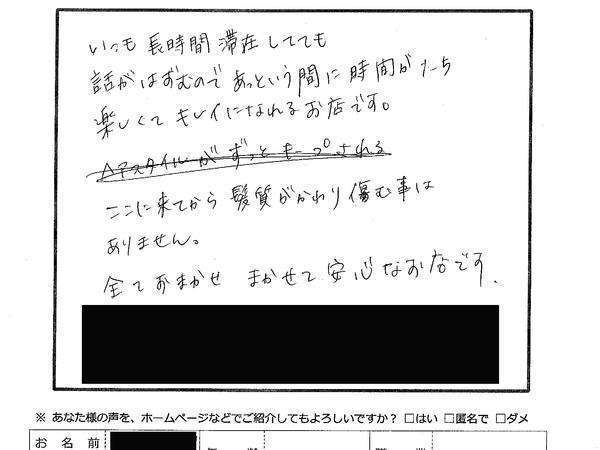 いつも 長時間 滞在してても
話がはずむので あっという間に 時間がたち
楽しくて キレイになれるお店です。
ヘアスタイルが ずっと キープされる
ここに来てから 髪質がかわり 傷む事は
ありません。
全ておまかせ まかせて 安心なお店です.
※ あなた様の声を、ホームページなどでご紹介してもよろしいですか？ □はい □匿名で □ダメ
お 名 前